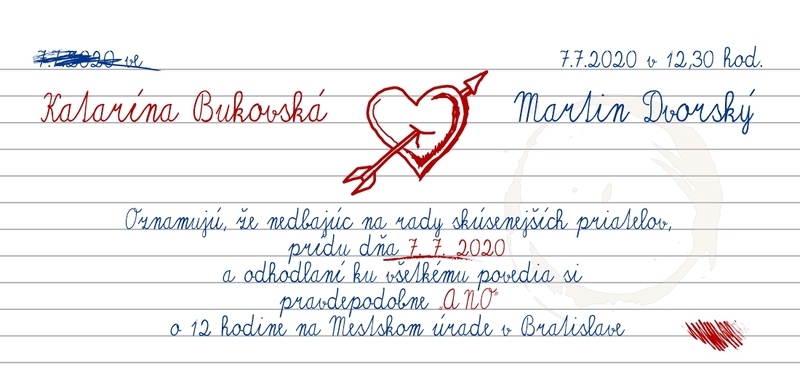 7.7.2020 ve
7.7.2020 v 12,30 hod.
Katarína Bukovská
Martin Dvorský
Oznamujú, že nedbajúc na rady skúsenejších priatelov,
prídu dňa 7. 7. 2020
a odhodlaní ku všetkému povedia si
pravdepodobne „ANO"
o 12 hodine na Mestskom úrade v Bratislave